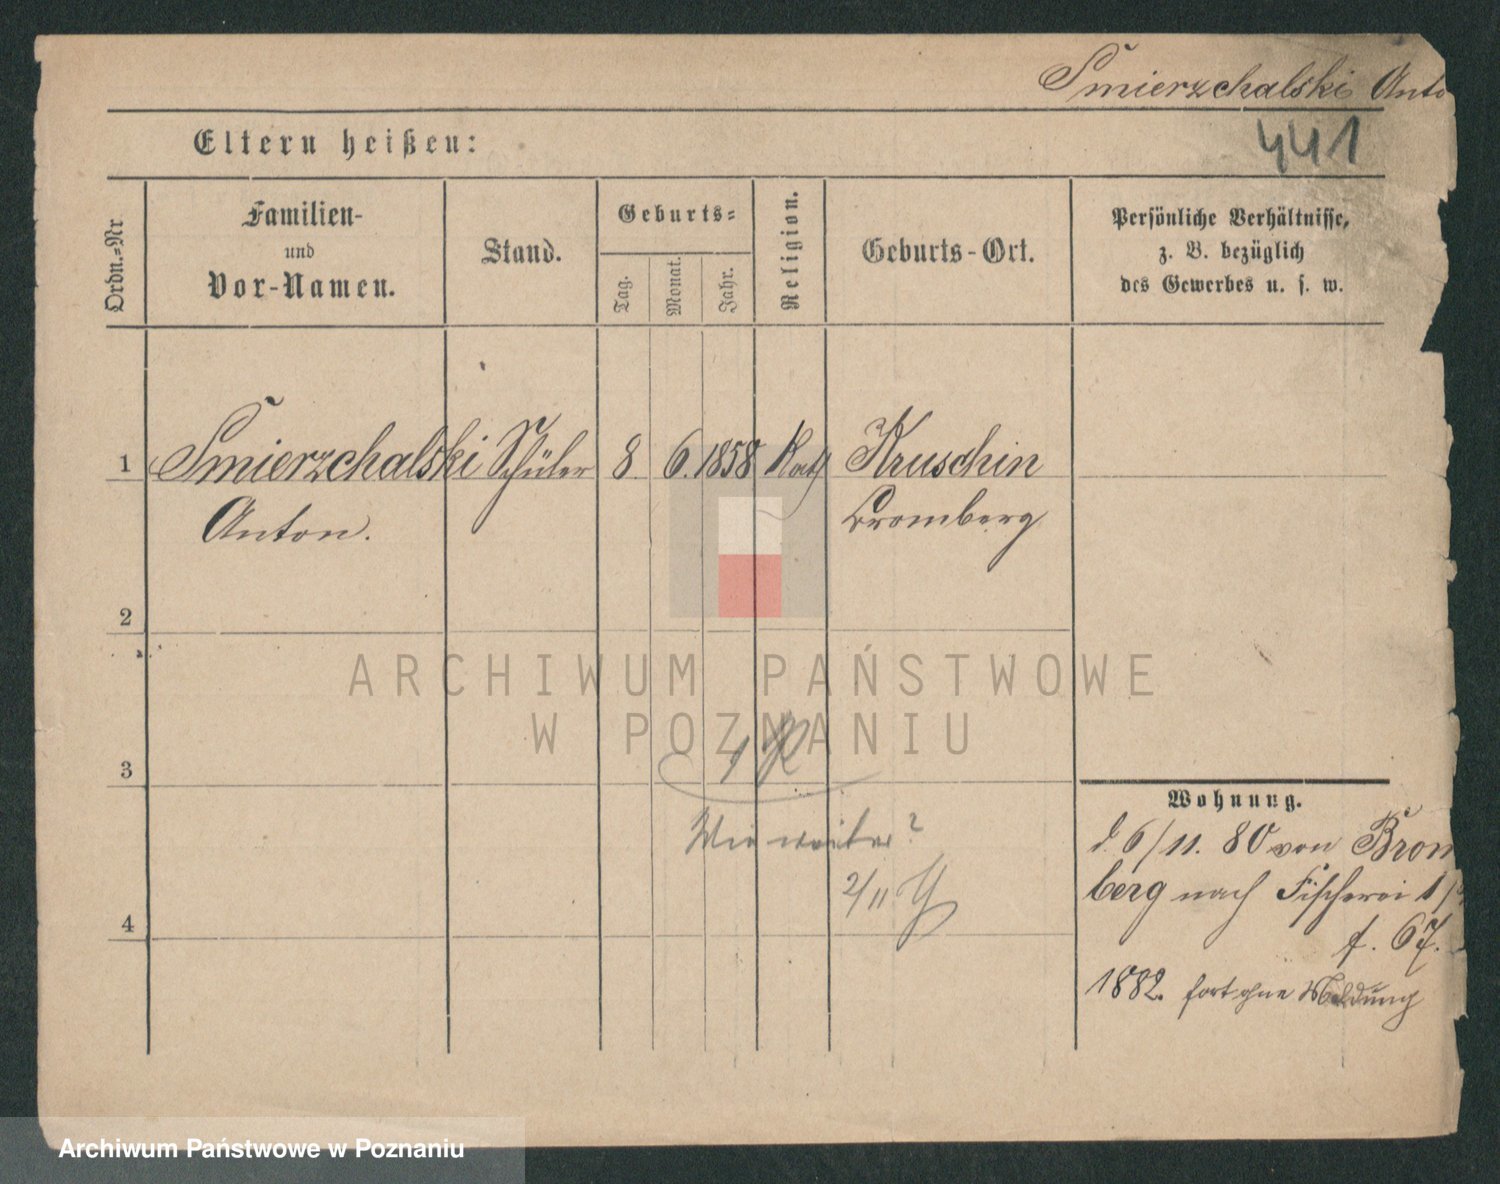 Smierzchalski Anto
441
Eltern heißen:
Ordn.-Nr
Familien-
und
Vor-Namen.
Stand.
Geburts-
Tag.
Monat.
Jahr.
Religion.
Geburts-Ort.
Persönliche Verhältnisse,
z. B. bezüglich
des Gewerbes u. s. w.
1 Smierzchalski Schüler 8. 6. 1858 Kath Kruschin
Anton. Bromberg
2
ARCHIWUM PAŃSTWOWE
W POZNANIU
3
4
Wie weiter?
2/11
Wohnung.
d. 6/11. 80 von Brom
berg nach Fischerei 1/
f. 67.
1882. fort ohne Meldung
Archiwum Państwowe w Poznaniu